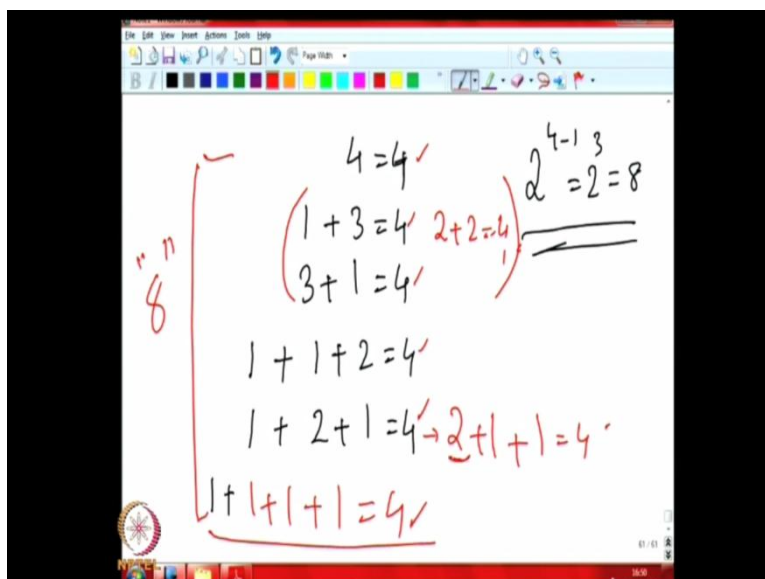 File Edit View Insert Actions Tools Help
Page Width
B I
4 = 4 ✓
2^{4-1} = 2^3 = 8
1 + 3 = 4 ✓ 2 + 2 = 4
3 + 1 = 4 ✓
"8"
1 + 1 + 2 = 4 ✓
1 + 2 + 1 = 4 ✓ → 2 + 1 + 1 = 4
1 + 1 + 1 + 1 = 4 ✓
61 / 61
NPTEL
16:50